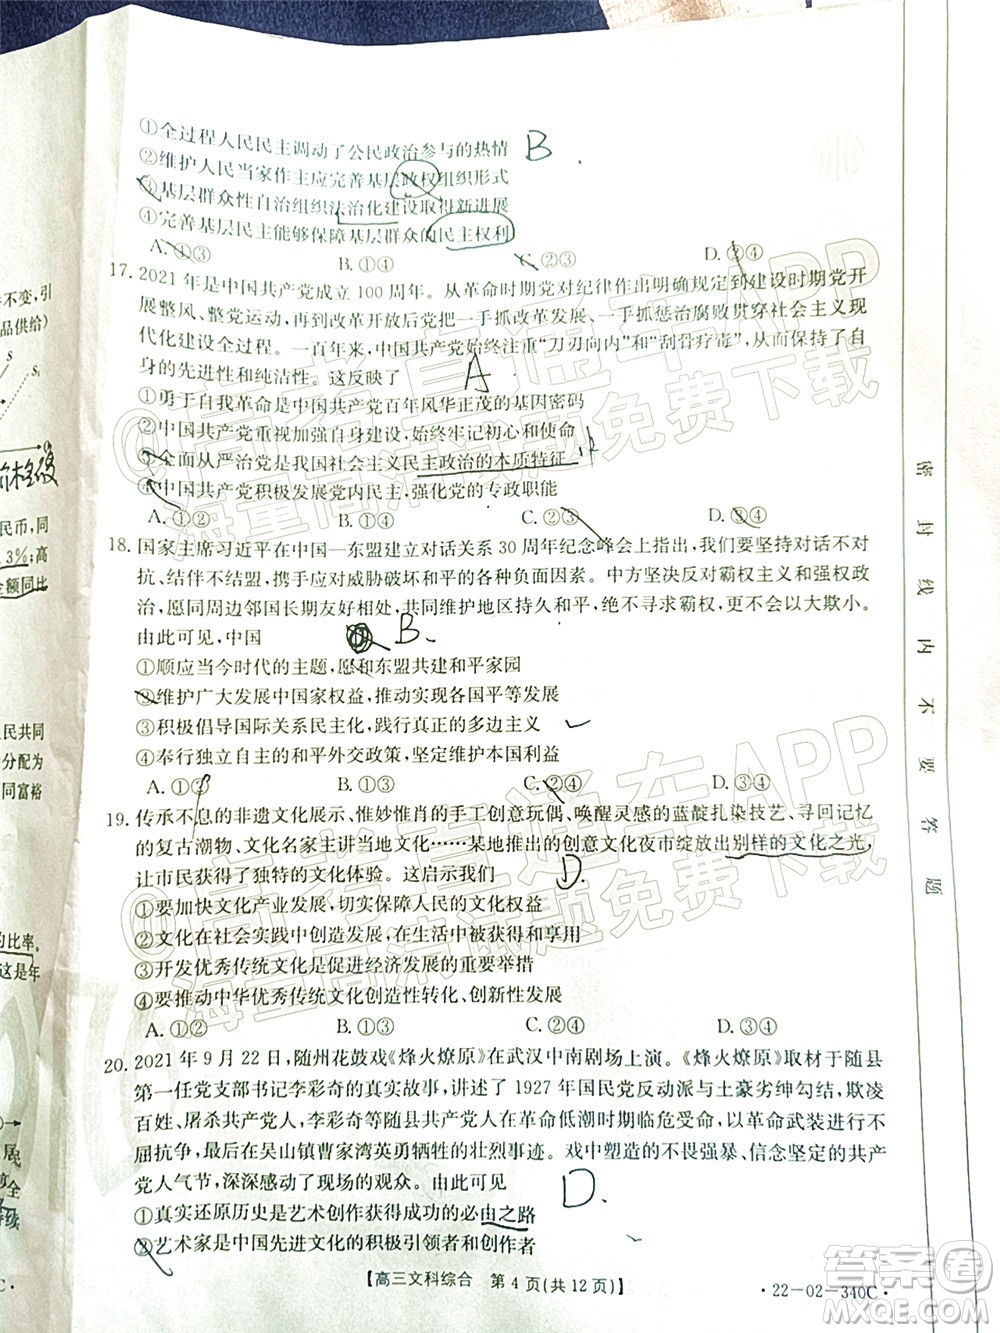 ①全过程人民民主调动了公民政治参与的热情
B.
②维护人民当家作主应完善基层政权组织形式
③基层群众性自治组织法治化建设取得新进展
④完善基层民主能够保障基层群众的民主权利
A.①③ B.①④ C.②③ D.②④
17. 2021年是中国共产党成立100周年。从革命时期党对纪律作出明确规定到建设时期党开
展整风、整党运动,再到改革开放后党一手抓改革开放、一手抓惩治腐败贯穿社会主义现
代化建设全过程。一百年来,中国共产党始终注重"刀刃向内"和"刮骨疗毒",永葆自
身的先进性和纯洁性。这反映了
A
①勇于自我革命是中国共产党百年风华正茂的基因密码
②中国共产党重视加强自身建设,始终牢记初心和使命
③全面从严治党是我国社会主义民主政治的本质特征
④中国共产党积极发展党内民主,强化党的专政职能
A.①② B.①④ C.②③ D.③④
18. 国家主席习近平在中国—东盟建立对话关系30周年纪念峰会上指出,我们要坚持对话不对
抗、结伴不结盟,携手应对威胁破坏和平的负面因素。中方坚决反对霸权主义和强权政
治,愿同周边邻国长期友好相处,共同维护地区持久和平,绝不寻求霸权,更不会以大欺小。
由此可见,中国
B.
①顺应当今时代的主题,愿和东盟共建和平家园
②维护广大发展中国家权益,推动实现各国平等发展
③积极倡导国际关系民主化,践行真正的多边主义
④奉行独立自主的和平外交政策,坚定维护本国利益
A.①② B.①③ C.②④ D.③④
19. 传承不息的非遗文化展示、惟妙惟肖的手工创意玩偶、唤醒灵感的蓝靛扎染技艺、寻回记忆
的复古潮物、文化名家主讲当地文化……某地推出的创意文化夜市绽放出别样的文化之光,
让市民获得了独特的文化体验。这启示我们
D.
①要加快文化产业发展,切实保障人民的文化权益
②文化在社会实践中创造发展,在生活中被获得和享用
③开发优秀传统文化是促进经济发展的重要举措
④要推动中华优秀传统文化创造性转化、创新性发展
A.①② B.①③ C.②④ D.③④
20. 2021年9月22日,随州花鼓戏《烽火燎原》在武汉中南剧场上演。《烽火燎原》取材于随县
第一任党支部书记李彩奇的真实故事,讲述了1927年国民党反动派与土豪劣绅勾结,欺凌
百姓、屠杀共产党人,李彩奇等随县共产党人在革命低潮时期临危受命,以革命武装反抗反
革命武装,后在吴山镇曹家湾英勇牺牲的壮烈事迹。戏中塑造的不畏强暴、信念坚定的共产
党人气节,深深感动了现场的观众。由此可见
D.
①真实还原历史是艺术创作获得成功的必由之路
②艺术家是中国先进文化的积极引领者和创作者
【高三文科综合 第4页(共12页)】
·22-02-340C·
密封线内不要答题
不变,引
品供给)
S
S₁
价格/
民币,同
3%;高
金额同比
民共同
分配为
同富裕
的比率。
这是年
居民
全
持续
C·
@高考直通车APP
海量高清试题免费下载
@高考直通车APP
海量高清试题免费下载